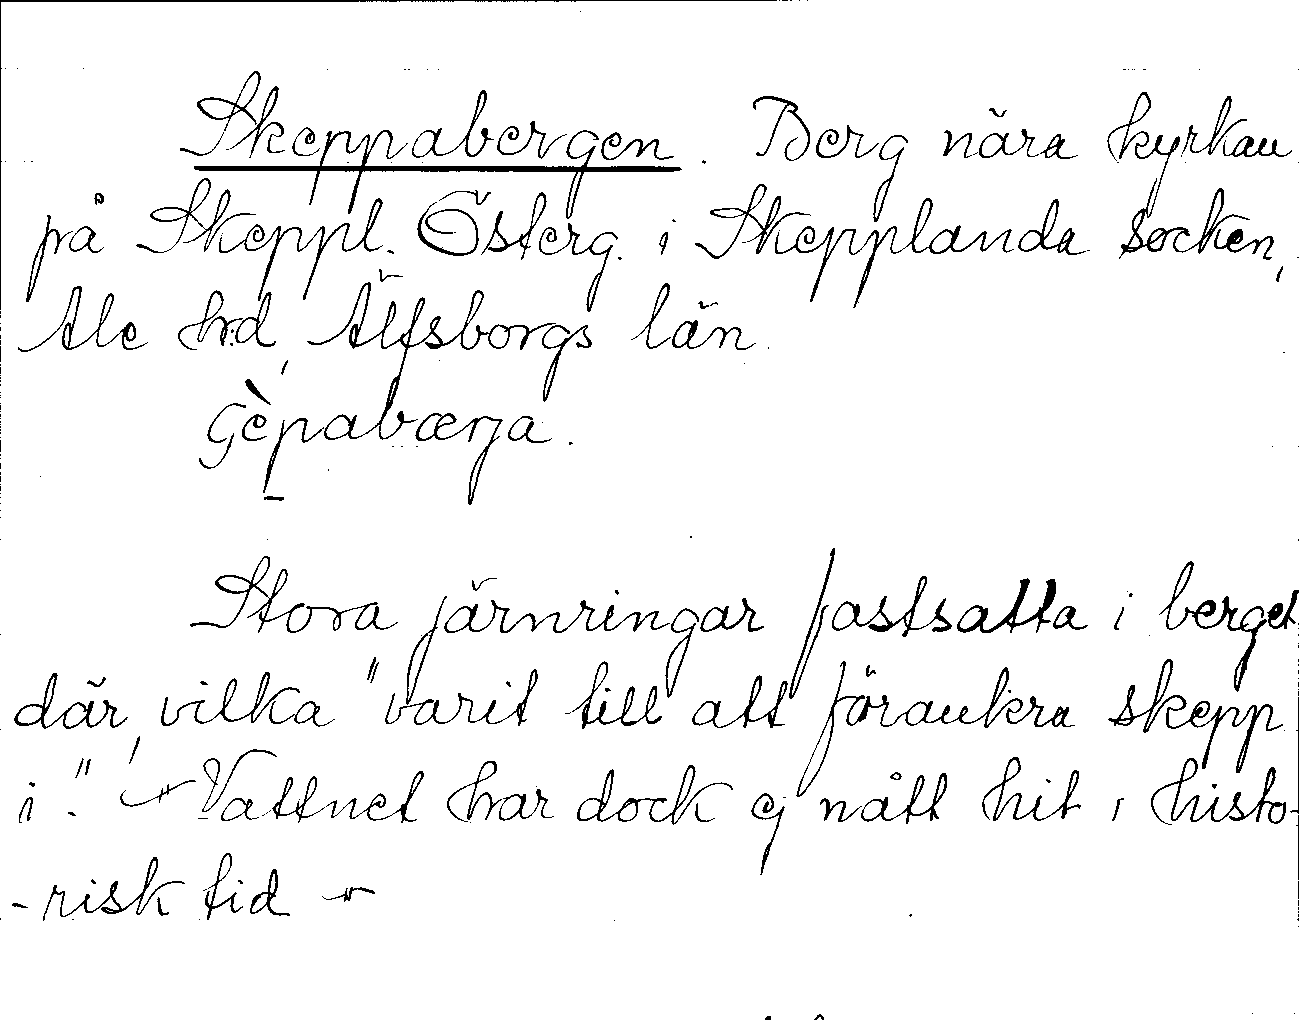 Skeppabergen. Berg nära kyrkan
på Skeppl. Österg. i Skepplanda socken,
Ale hrd, Älfsborgs län.
Gèpabærja.
Stora järnringar fastsatta i berget
där, vilka "varit till att förankra skepp
i." - Vattnet har dock ej nått hit i histo-
-risk tid -